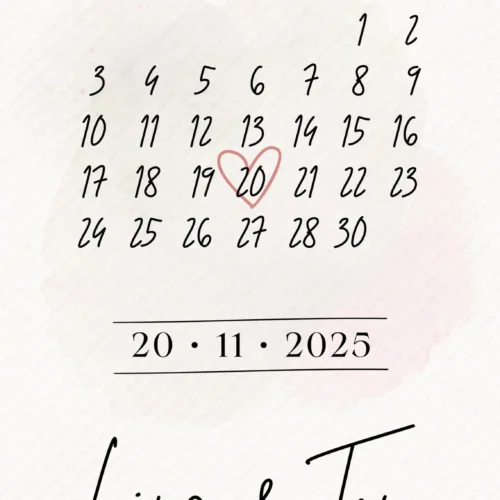 1 2
3 4 5 6 7 8 9
10 11 12 13 14 15 16
17 18 19 20 21 22 23
24 25 26 27 28 30
20 • 11 • 2025
&